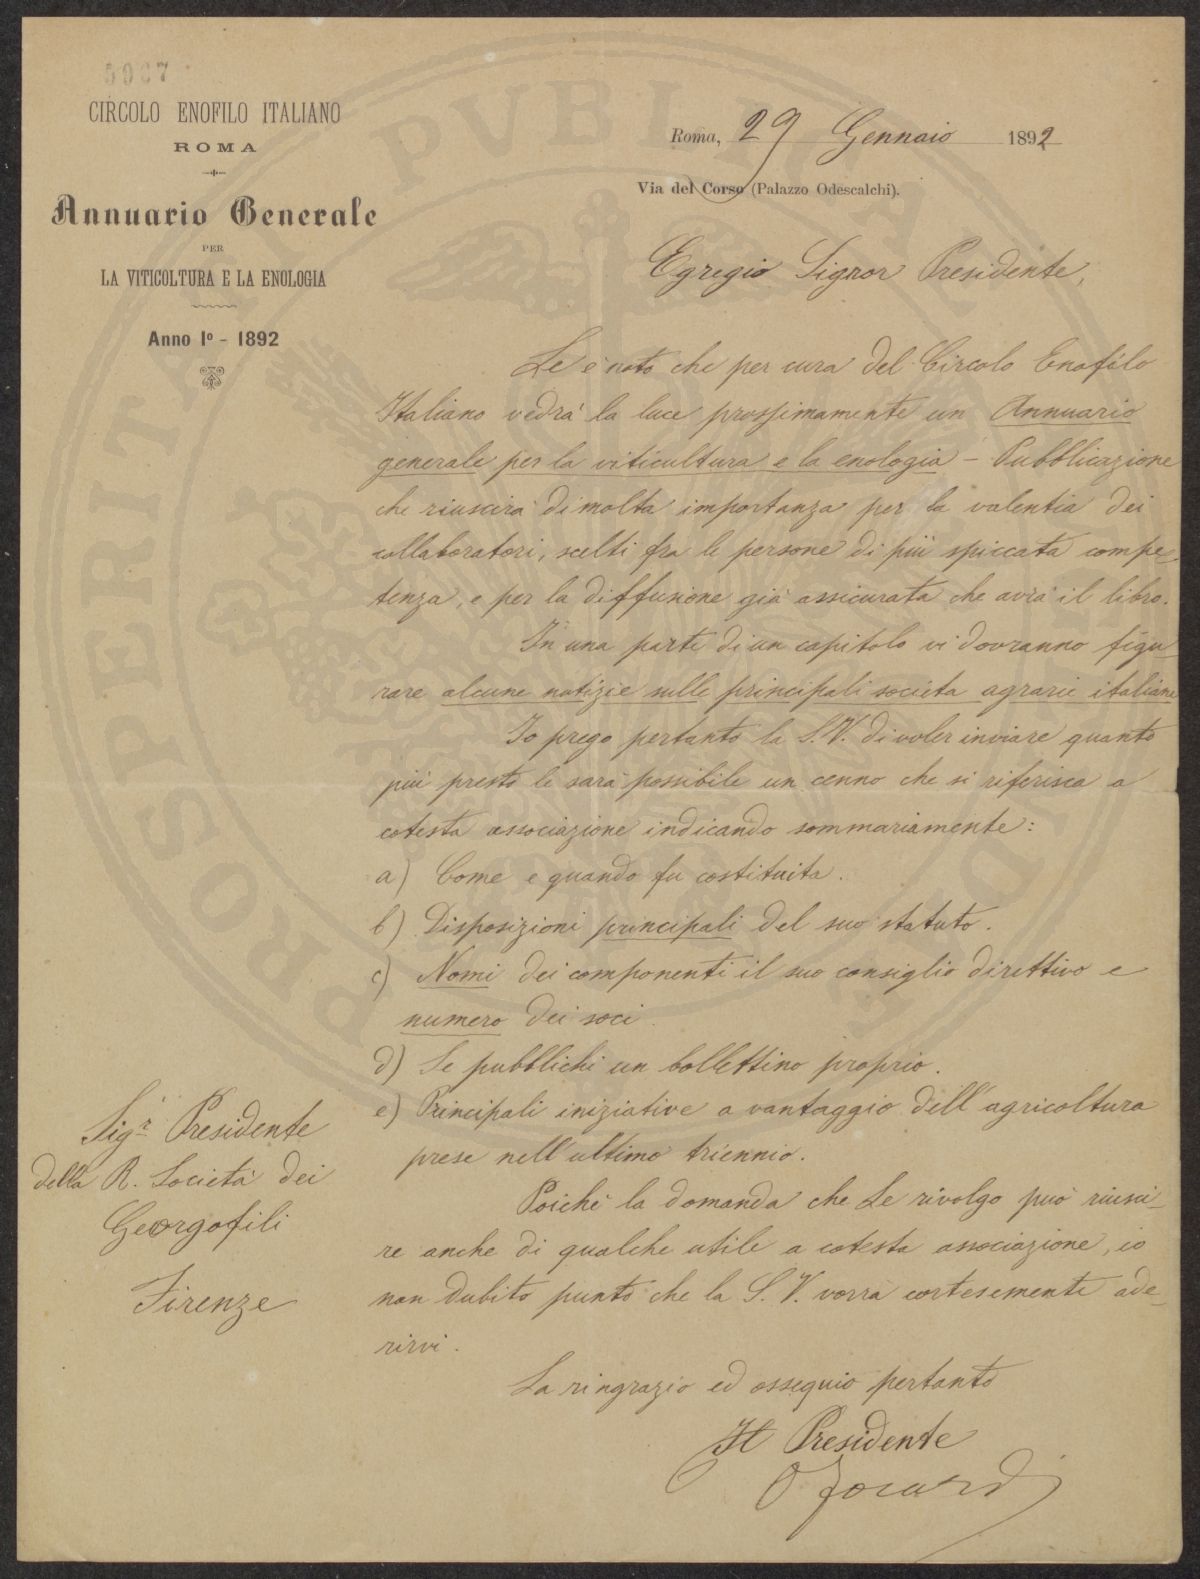 5967
CIRCOLO ENOFILO ITALIANO
ROMA
Annuario Generale
PER
LA VITICOLTURA E LA ENOLOGIA
Anno Iº - 1892
Roma, 29 Gennaio 1892
Via del Corso (Palazzo Odescalchi).
Egregio Signor Presidente,
Le è noto che per cura del Circolo Enofilo
Italiano vedrà la luce prossimamente un Annuario
generale per la viticultura e la enologia – Pubblicazione
che riuscirà di molta importanza per la valentia dei
collaboratori, scelti fra le persone di più spiccata compe-
tenza, e per la diffusione già assicurata che avrà il libro.
In una parte di un capitolo vi dovranno figu-
rare alcune notizie sulle principali società agrarie italiane
Io prego pertanto la S.V. di voler inviare quanto
più presto le sarà possibile un cenno che si riferisca a
cotesta associazione indicando sommariamente:
a) Come e quando fu costituita.
b) Disposizioni principali del suo statuto.
c) Nomi dei componenti il suo consiglio direttivo e
numero dei soci.
d) Se pubblichi un bollettino proprio.
e) Principali iniziative a vantaggio dell'agricoltura
prese nell'ultimo triennio.
Poichè la domanda che Le rivolgo può riusci-
re anche di qualche utile a cotesta associazione, io
non dubito punto che la S.V. vorrà cortesemente ade-
rirvi.
La ringrazio ed ossequio pertanto
Il Presidente
Sigr Presidente
della R. Società dei
Georgofili
Firenze
PROSPERITATI PVBLICAE